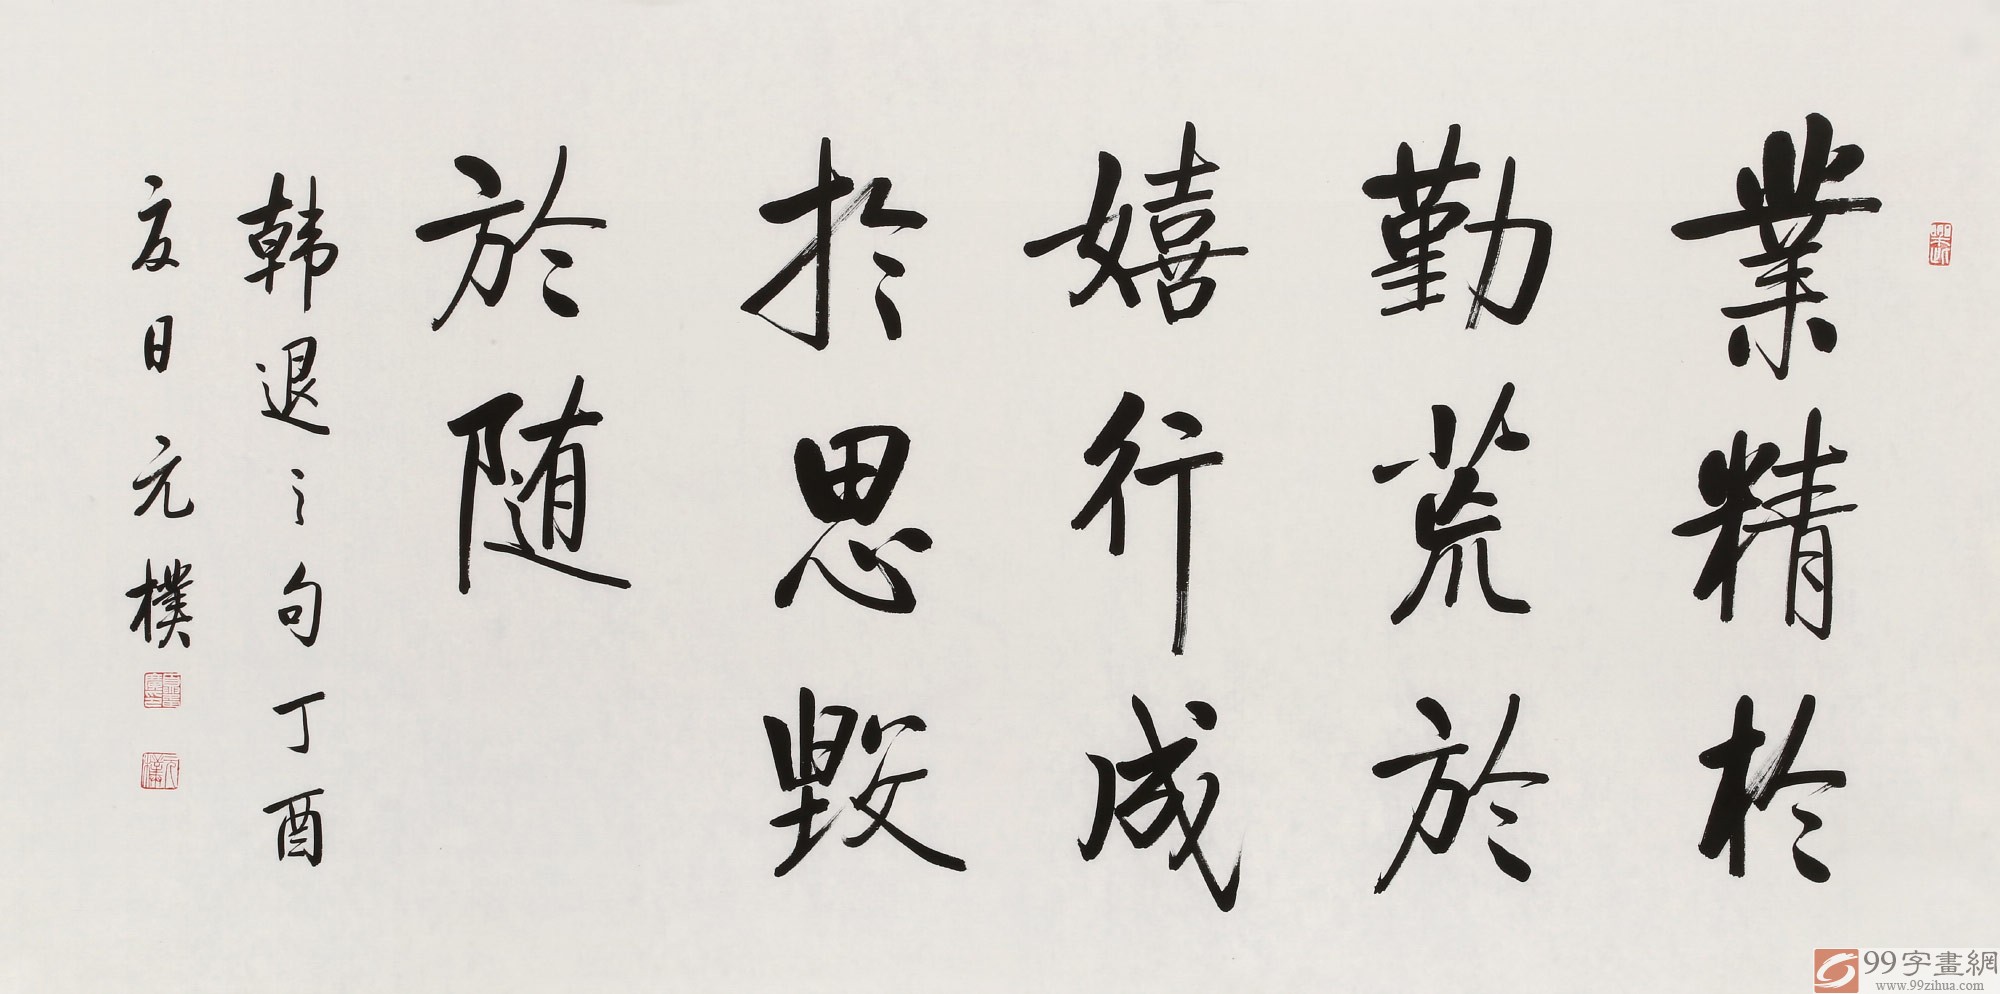 業精於
勤荒於
嬉行成
於思毀
於随
韩退之句丁酉
夏日元樸
元樸
99字畫網
www.99zihua.com